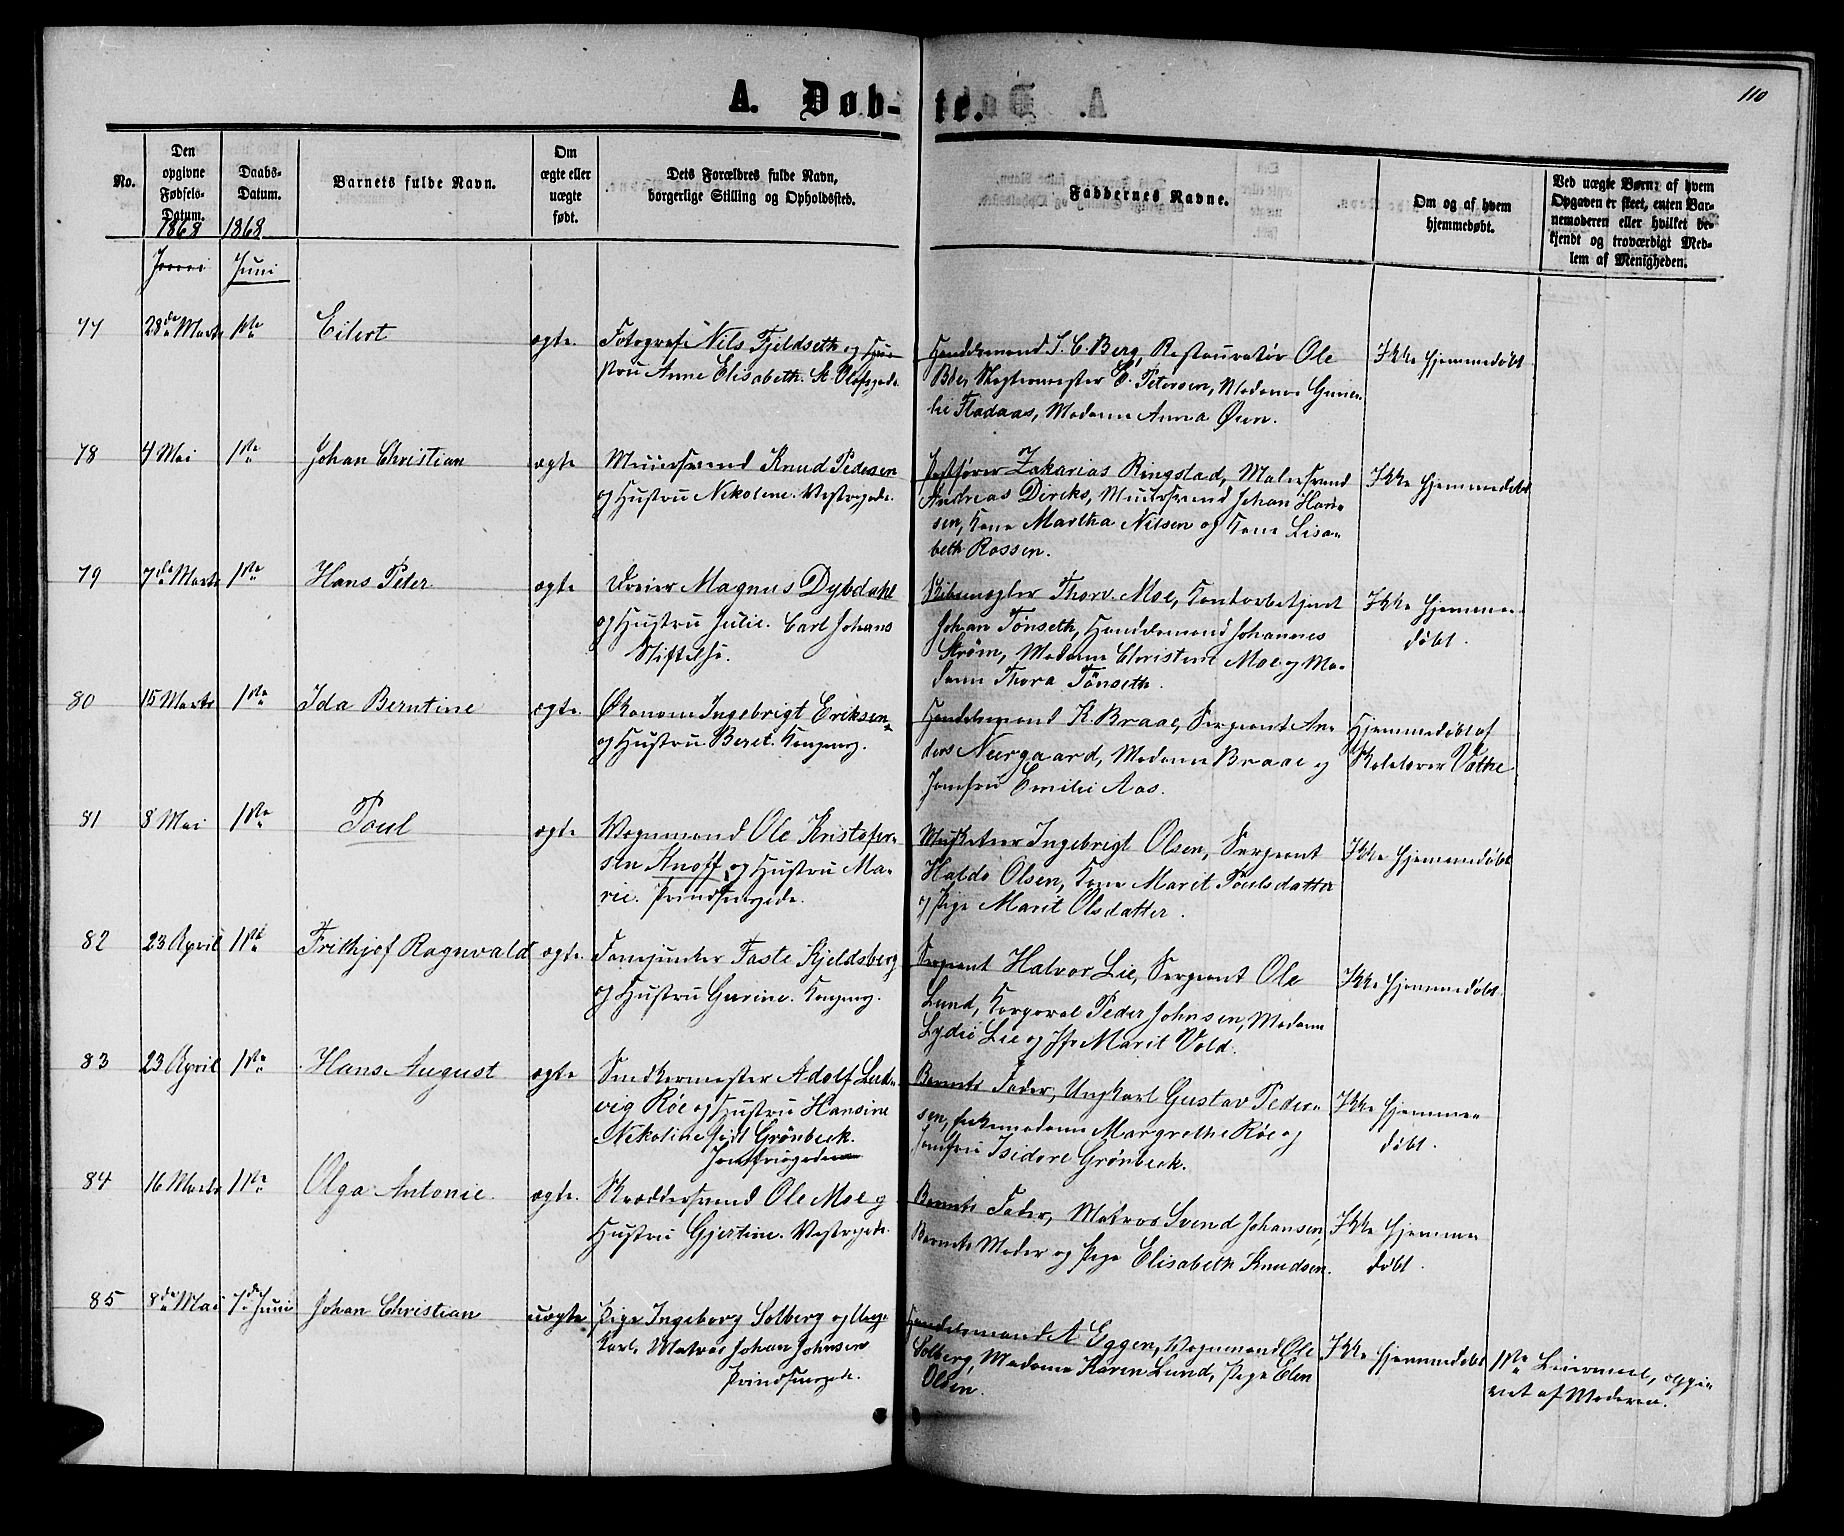 110
A. Døb-te.
No.
Den opgivne Fødsels-Datum.
Daabs-Datum.
Barnets fulde Navn.
Om ægte eller uægte født.
Dets Forældres fulde Navn, borgerlige Stilling og Opholdssted.
Faddernes Navne.
Om og af hvem hjemmedøbt.
Ved uægte Børn: af hvem Opgaven er skeet, enten Barnemoderen eller hvilket bekjendt og troværdigt Medlem af Menigheden.
1868 1868
Juni
77 28de Marts 1ste Eilert ægte. Fotograf Nils Fjeldseth og Hu-
stru Anne Elisabeth. St. Olafsgade.
Handelsmand S. C. Berg, Restauratør Ole
Bøe, Slagtermester E. Petersen, Madame Gune-
lie Fladaas, Madame Anna Øien.
Ikke hjemmedøbt
78 4 Mai 1ste Johan Christian ægte Muursvend Knud Pedersen
og Hustru Nikoline. Vestregade.
Postfører Zakarias Ringstad, Malersvend
Andreas Dircks, Muursvend Johan Han-
sen, Kone Martha Nilsen og Kone Lisa-
beth Rossen.
Ikke hjemmedøbt
79 7de Marts 1ste Hans Peter ægte Dreier Magnus Dybdahl
og Hustru Julie. Carl Johans
Stiftelse.
Skibsmægler Thorv. Moe, Contorbetjent
Johan Tönseth, Handelsmand Johannes
Strøm, Madame Christine Moe og Ma-
dame Thora Tönseth.
Ikke hjemme-
døbt.
80 15 Marts 1ste Ida Berntine ægte. Økonom Ingebrigt Eriksen
og Hustru Beret. Kongensg.
Handelsmand K. Braae, Sergeant An-
ders Neergaard, Madame Braae og
Jomfru Emilie Aas.
Hjemmedøbt af
Skolelærer Vatne
81 8 Mai 1ste Poul ægte Vognmand Ole Kristofer-
sen Knoff og Hustru Ma-
rie. Prindsensgade.
Musketeer Ingebrigt Olsen, Sergeant
Haldo Olsen, Kone Marit Poulsdatter
og Pige Marit Olsdatter.
Ikke hjemmedøbt
82 23 April 1ste Frithjof Ragnvald ægte. Fanejunker Faste Kjeldsberg
og Hustru Gurine. Kongensg.
Sergeant Halvor Lie, Sergeant Ole
Lund, Korporal Peder Johnsen, Madame
Lydie Lie og Jfr Marit Vold.
Ikke hjemmedøbt.
83 23 April 1ste Hans August ægte Snedkermester Adolf Lud-
vig Röe og Hustru Hansine
Nikoline født Grönbeck.
Jomfrugaden
Barnets Fader, Ungkarl Gustav Peder-
sen, Enkemadame Margrethe Röe og
Jomfru Isidore Grönbeck.
Ikke hjemme-
døbt.
84 16 Marts 1ste Olga Antonie ægte. Skræddersvend Ole Moe og
Hustru Gjertine. Vestregade.
Barnets Fader, Matros Svend Johansen
Barnets Moder og Pige Elisabeth Knudsen.
Ikke hjemme-
døbt.
85 8de Mai 7de Juni Johan Christian uægte Pige Ingeborg Solberg og Unge-
karl, Matros Johan Johnsen
Prindsensgade.
Handelsmand A. Eggen, Vognmand Ole
Solberg, Madame Karen Lund, Pige Elen
Olsen.
Ikke hjemmedøbt
1ste Leiermaal, opgi-
vet af Moderen.